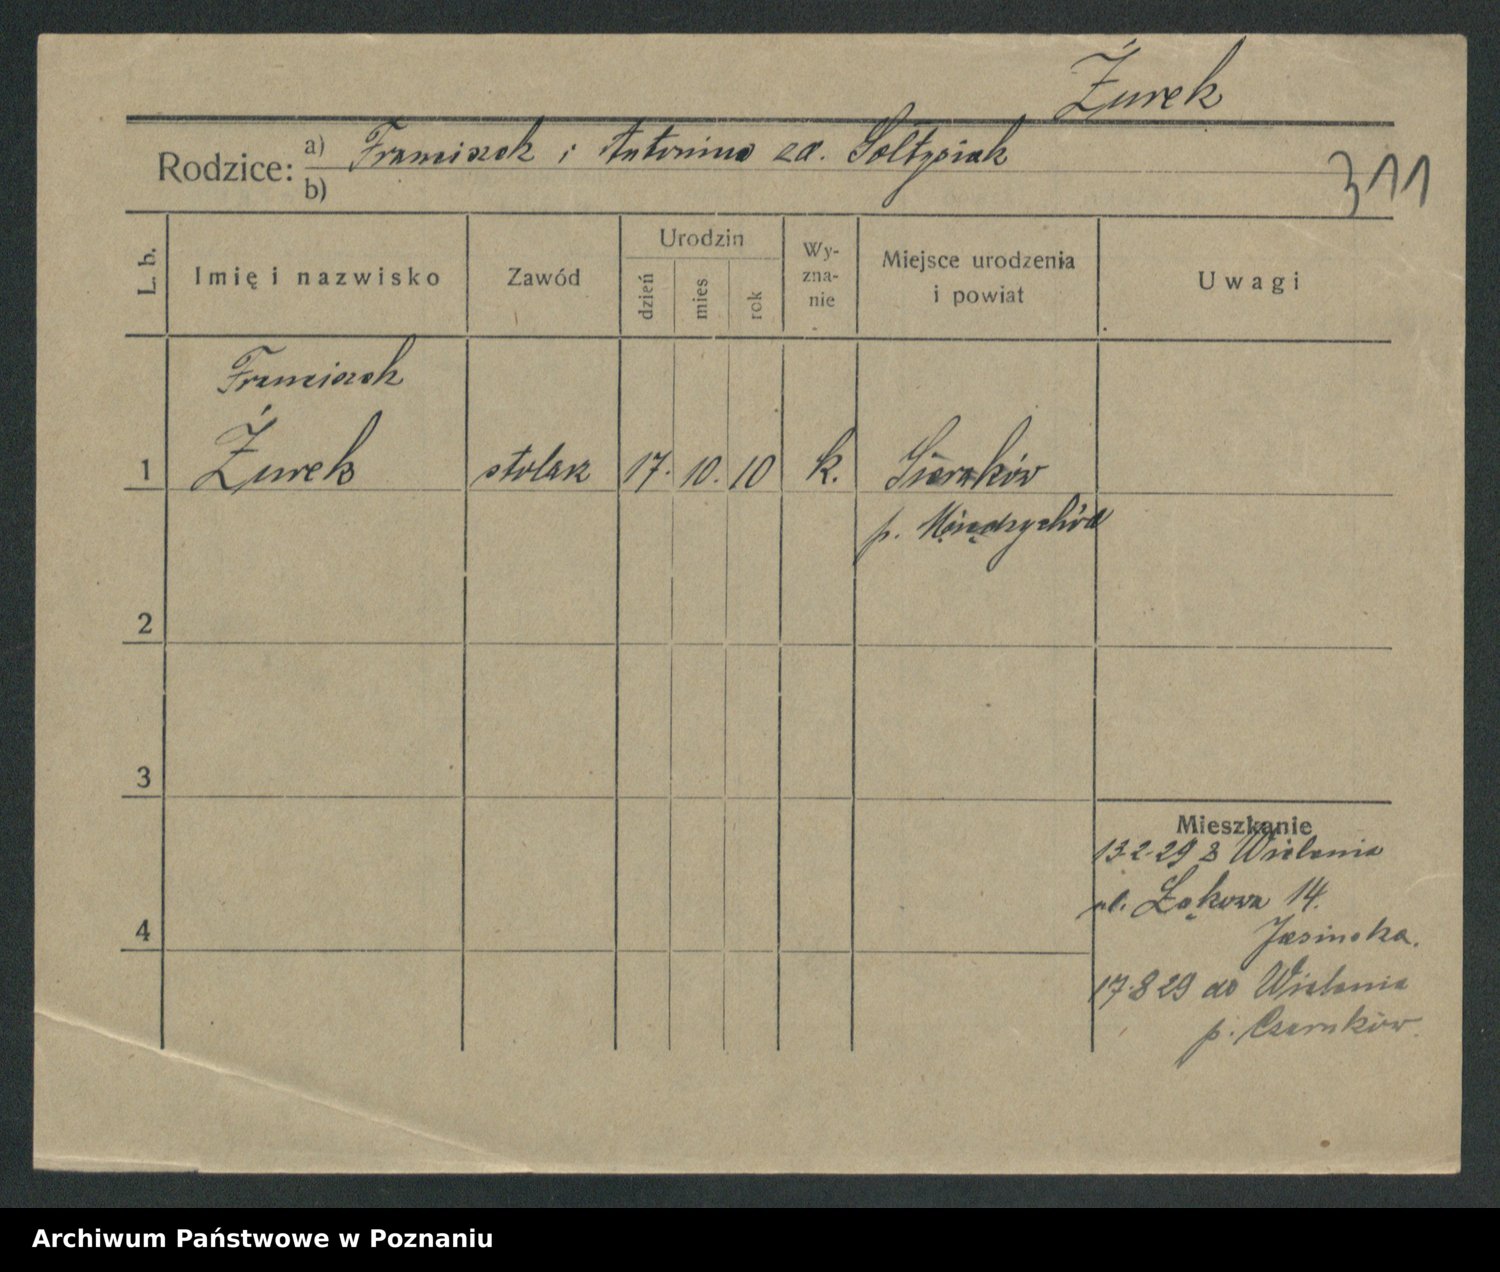 Żurek
Rodzice: a) Franciszek i Antonina zd. Sołtysiak
b)
311
L. b.
Imię i nazwisko
Zawód
Urodzin
dzień
mies
rok
Wy-
zna-
nie
Miejsce urodzenia
i powiat
Uwagi
Franciszek
1 Żurek stolarz 17. 10. 10 k. Sieraków
p. Międzychód
2
3
4
Mieszkanie
13-2-29 z Wielenia
ul. Łąkowa 14.
Jasinska.
17-8 29 do Wielenia
p. Czarnków
Archiwum Państwowe w Poznaniu